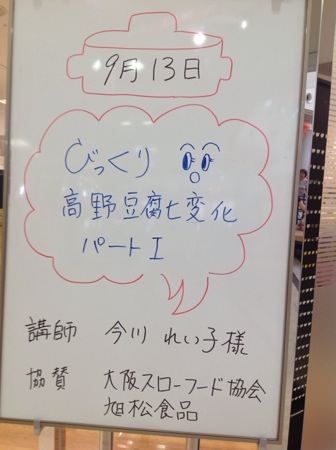 9月13日
びっくり
高野豆腐七変化
パートI
講師 今川 れい子様
協賛 大阪スローフード協会
旭松食品